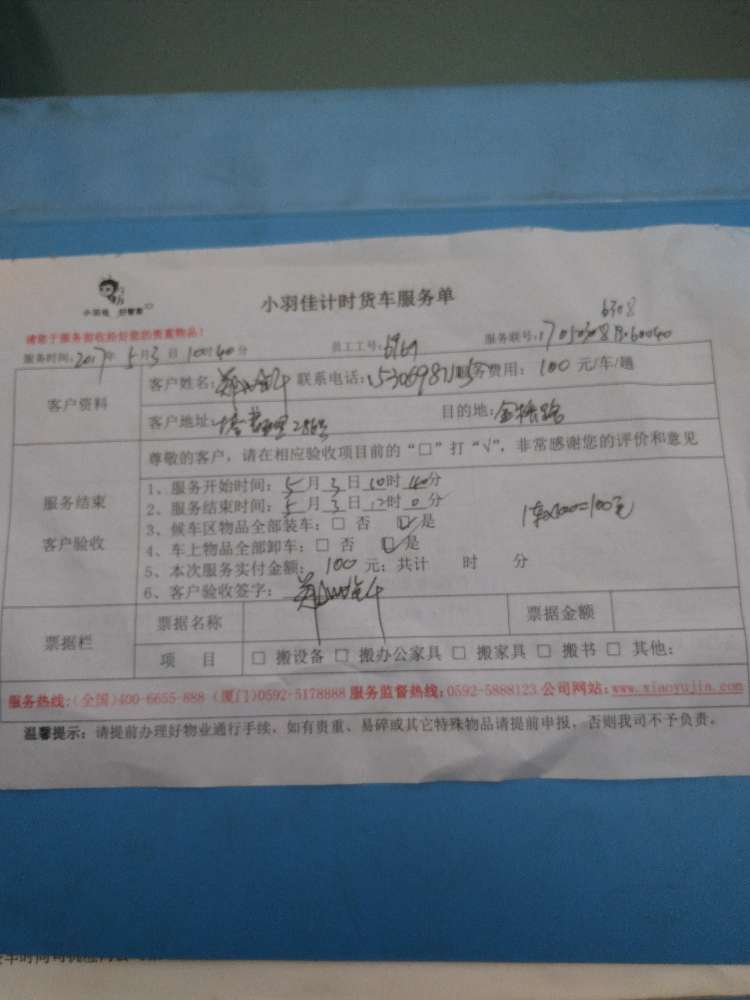 小羽佳 好管家
小羽佳计时货车服务单
6308
请您于服务前收拾好您的贵重物品!
服务时间: 2017年 5月 3日 10时40分 员工工号: 服务联号:
客户资料
客户姓名: 联系电话: 服务费用: 100 元/车/趟
客户地址: 目的地:
服务结束
客户验收
尊敬的客户,请在相应验收项目前的“□”打“√”,非常感谢您的评价和意见
1、服务开始时间: 5月 3日 10时 40分
2、服务结束时间: 5月 3日 12时 0分
3、候车区物品全部装车: □ 否 ☑ 是
4、车上物品全部卸车: □ 否 ☑ 是
5、本次服务实付金额: 100 元; 共计 时 分
6、客户验收签字:
票据栏
票据名称 票据金额
项 目 □ 搬设备 □ 搬办公家具 □ 搬家具 □ 搬书 □ 其他:
服务热线:(全国)400-6655-888 (厦门)0592-5178888 服务监督热线:0592-5888123 公司网站:www.xiaoyujia.com
温馨提示: 请提前办理好物业通行手续, 如有贵重、易碎或其它特殊物品请提前申报, 否则我司不予负责。